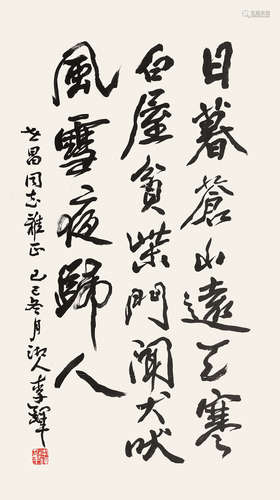 日暮蒼山遠天寒
白屋貧柴門聞犬吠
風雪夜歸人
世昌同志雅正 己巳冬月湖人李鐸